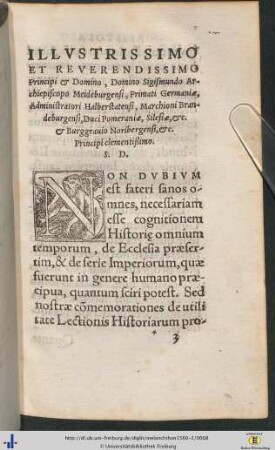 ILLVSTRISSIMO
ET REVERENDISSIMO
Principi & Domino, Domino Sigismundo Ar-
chiepiscopo Meideburgensi, Primati Germaniæ,
Administratori Halberstatensi, Marchioni Bran-
deburgensi, Duci Pomeraniæ, Silesiæ, &c.
& Burggrauio Noribergensi, &c.
Principi clementissimo.
S. D.
NON DVBIVM
est fateri sanos o-
mnes, necessariam
esse cognitionem
Historię omnium
temporum, de Ecclesia præser-
tim, & de serie Imperiorum, quæ
fuerunt in genere humano præ-
cipua, quantum sciri potest. Sed
nostræ cōmemorationes de utili
tate Lectionis Historiarum pro-
3
http://dl.ub.uni-freiburg.de/diglit/melanchthon1560-1/0008
© Universitätsbibliothek Freiburg